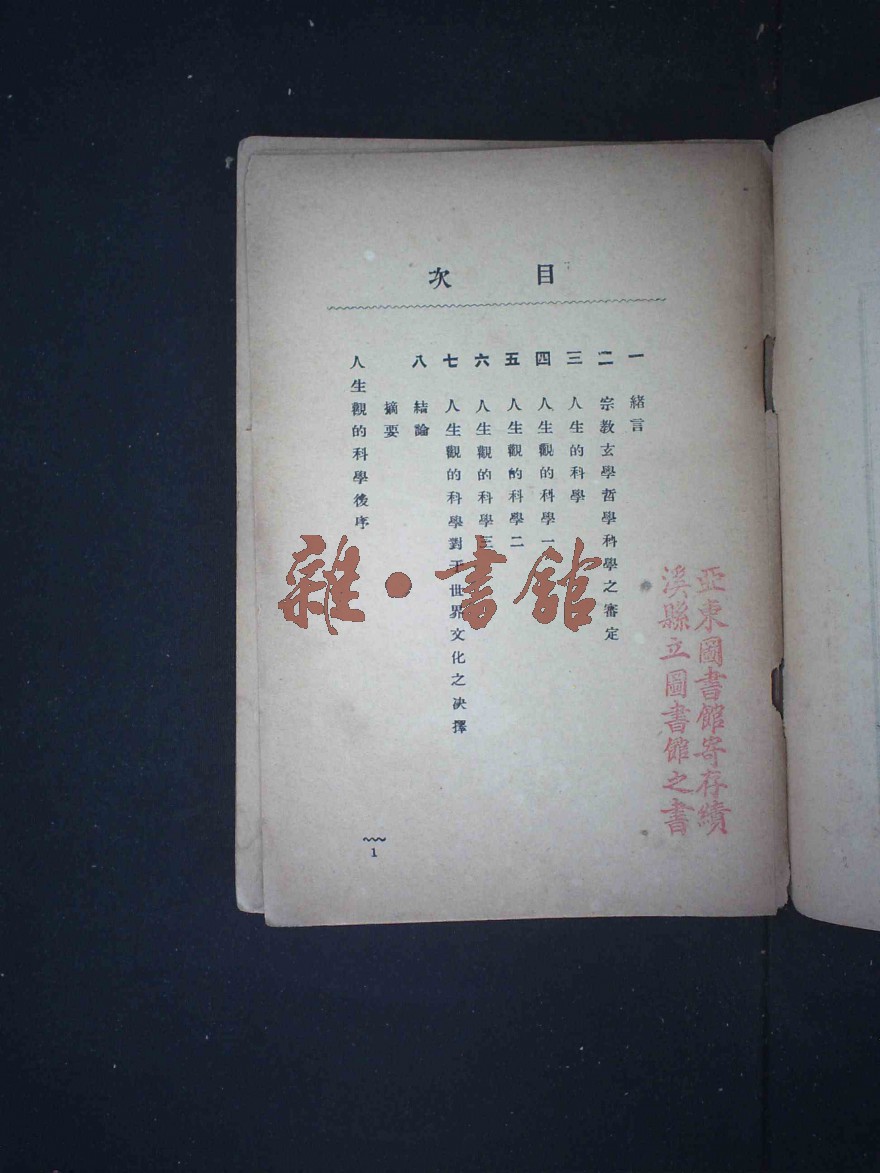 目次
一 緒言
二 宗教玄學哲學科學之審定
三 人生的科學
四 人生觀的科學一
五 人生觀的科學二
六 人生觀的科學三
七 人生觀的科學對于世界文化之決擇
八 結論
摘要
人生觀的科學後序
1
亞東圖書館寄存績
溪縣立圖書館之書
雜·書館